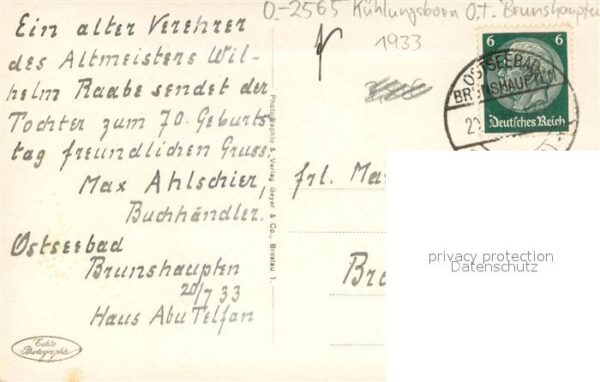 O-2565 Kühlungsborn O.T. Brunshaupten
1933
Ein alter Verehrer
des Altmeisters Wil-
helm Raabe sendet der
Tochter zum 70. Geburts
tag freundlichen Gruss.
Max Ahlschier,
Buchhändler.
Ostseebad
Brunshaupten
20/7 33
Haus Abu Telfan
Echte
Photographie
Photographie & Verlag Geyer & Co., Breslau 1.
6 6
Deutsches Reich
OSTSEEBAD
BRUNSHAUPTEN
frl. Mar
Br
privacy protection
Datenschutz